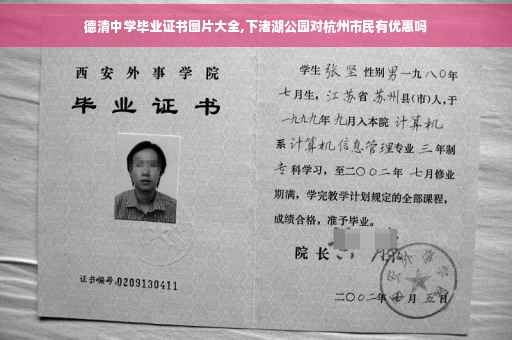 德清中学毕业证书图片大全,下渚湖公园对杭州市民有优惠吗
西安外事学院
毕业证书
证书编号:0209130411
学生 张坚 性别 男 一九八〇年
七月生, 江苏省 苏州县(市)人,于
一九九九年 九月入本院 计算机
系 计算机信息管理专业 三 年制
专科学习,至二〇〇二年 七月修业
期满,学完教学计划规定的全部课程,
成绩合格,准予毕业。
院长
二〇〇二年 七月 五日